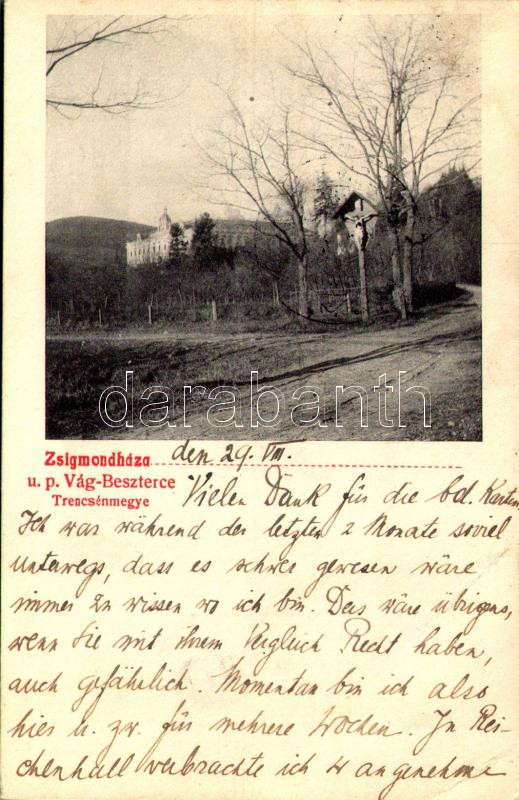 darabanth
Zsigmondháza den 29. VIII.
u. p. Vág-Beszterce
Trencsénmegye
Vielen Dank für die bd. Karten
Ich war während der letzten 2 Monate soviel
unterwegs, dass es schwer gewesen wäre
immer zu wissen wo ich bin. Das wäre übrigens,
wenn Sie mit ihrem Vergleich Recht haben,
auch gefährlich. Momentan bin ich also
hier u. zw. für mehrere Wochen. In Rei-
chenhall verbrachte ich 4 angenehme